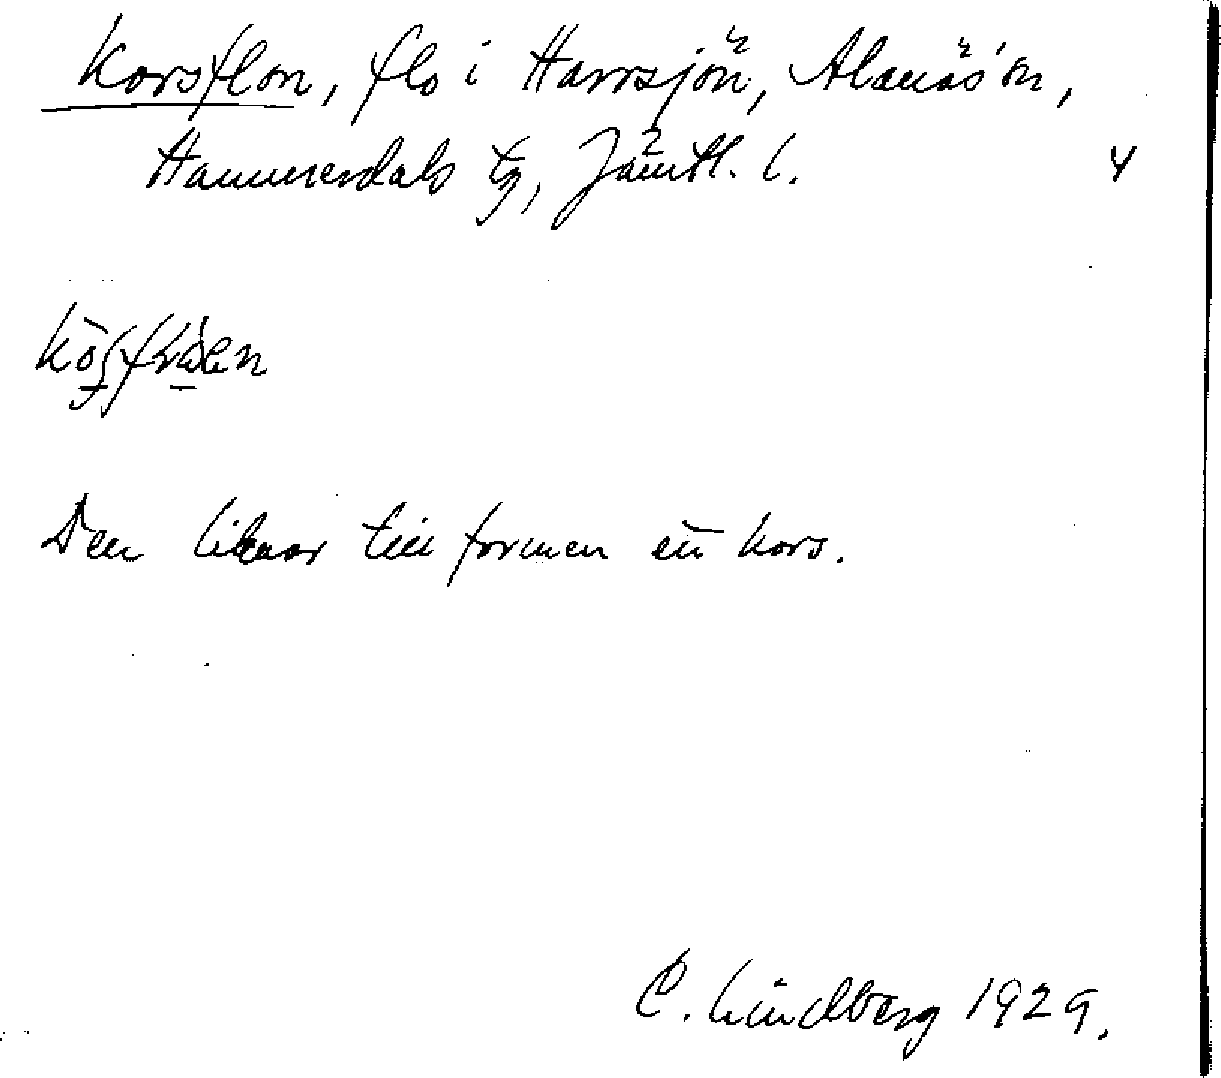 Korsflon, flo i Harrsjön, Alanäs sn,
Hammerdals tg, Jämtl. l. 4
Den liknar till formen ett kors.
C. Lindberg 1929.